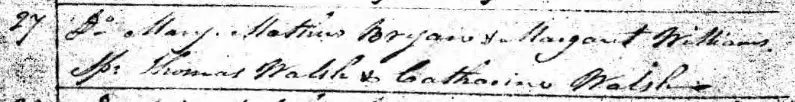 27 Do Mary. Mathew Bryan & Margaret Williams.
Sps Thomas Walsh & Catharine Walsh